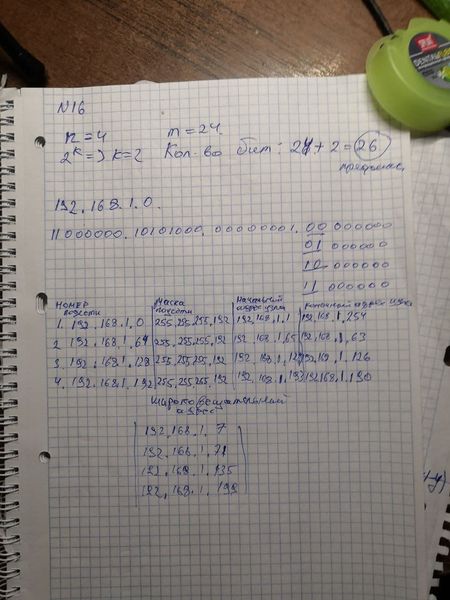 N16
n=4 m=24
2^k=> k=2 Кол-во бит: 24+2=26
192.168.1.0.
11000000.10101000.00000001.00 000000
01 000000
10 000000
11 000000
НОМЕР подсети Маска подсети Начальный адрес узла Конечный адрес узла
1. 192.168.1.0 255.255.255.192 192.168.1.1 192.168.1.254
2 192.168.1.64 255.255.255.192 192.168.1.65 192.168.1.63
3. 192.168.1.128 255.255.255.192 192.168.1.129 192.168.1.126
4. 192.168.1.192 255.255.255.192 192.168.1.193 192.168.1.190
широковещательный
адрес
192.168.1.7
192.168.1.71
192.168.1.135
192.168.1.199